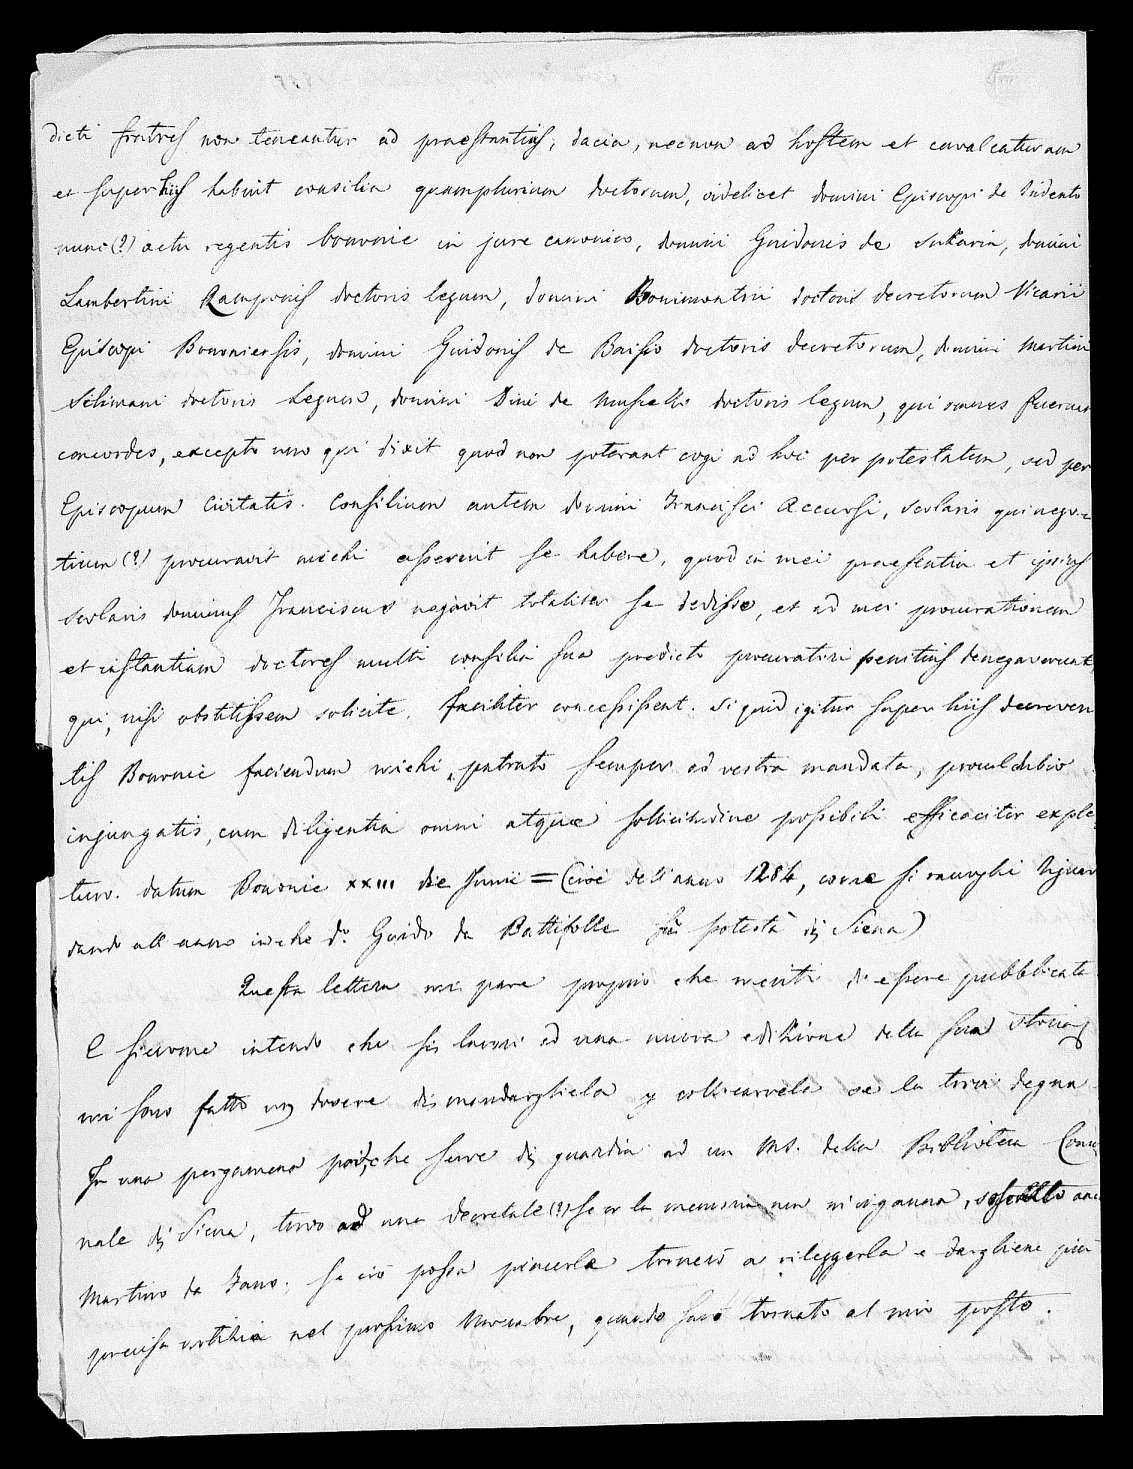 dicti fratres non teneantur ad praestantias, dacia, necnon ad hostem et cavalcaturam
et super hiis habuit consilia quamplurium doctorum, videlicet domini Episcopi de Tridento
nunc (?) actu regentis bononie in jure canonico, domini Guidonis de Suzaria, domini
Lambertini Ramponis doctoris legum, domini Bonimontini doctoris decretorum Vicarii
Episcopi Bononiensis, domini Guidonis de Baisio doctoris decretorum, domini Martini
Silimani doctoris Legum, domini Dini de Muscello doctoris legum, qui omnes fuerunt
concordes, excepto uno qui dixit quod non poterant cogi ad hoc per potestatem, sed per
Episcopum Civitatis. Consilium autem domini Francisci Accursi, scolaris qui nego-
tium (?) procuravit michi asseruit se habere, quod in mei praesentia et ipsius
scolaris dominus Franciscus negavit totaliter se dedisse, et ad mei procurationem
et instantiam doctores multi consilia sua predicto procuratori penitus denegaverunt,
qui, nisi obstitissem solicite, faciliter concessissent. Si quid igitur super hiis decreveri
tis Bononie faciendum michi, parato semper ad vestra mandata, proculdubio
injungatis, cum diligentia omni atque sollicitudine possibili efficaciter exple-
turo. Datum Bononie XXIII die Junii = (Cioè dell'anno 1284, come si raccoglie riguar
dando all'anno in che d.º Guido da Battifolle fu potestà di Siena)
Questa lettera mi pare proprio che meriti di essere pubblicata
E siccome intendo che sis lavori ad una nuova edizione della sua storia,
mi sono fatto un dovere di mandargliela p collocarvela se la trova degna.
In una pergamena poi, che serve di guardia ad un MS. della Biblioteca Comu
nale di Siena, trovo ad una decretale (?) se la memoria non m'inganna, soscritto anc
Martino da Fano. Se ciò possa piacerle tornerò a rileggerla e dargliene più
precisa notizia nel prossimo Novembre, quando sarò tornato al mio posto.